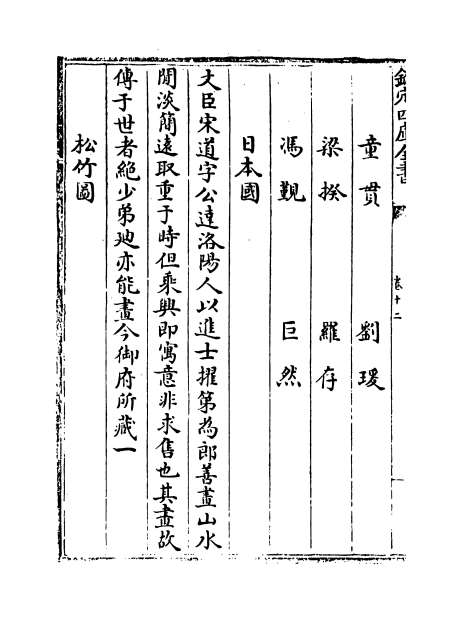 欽定四庫全書
卷十二
童貫 劉瑗
梁揆 羅存
馮覲 巨然
日本國
文臣宋道字公達洛陽人以進士擢第為郎善畫山水
閒淡簡遠取重于時但乘興即寓意非求售也其畫故
傳于世者絶少弟廸亦能畫今御府所藏一
松竹圖